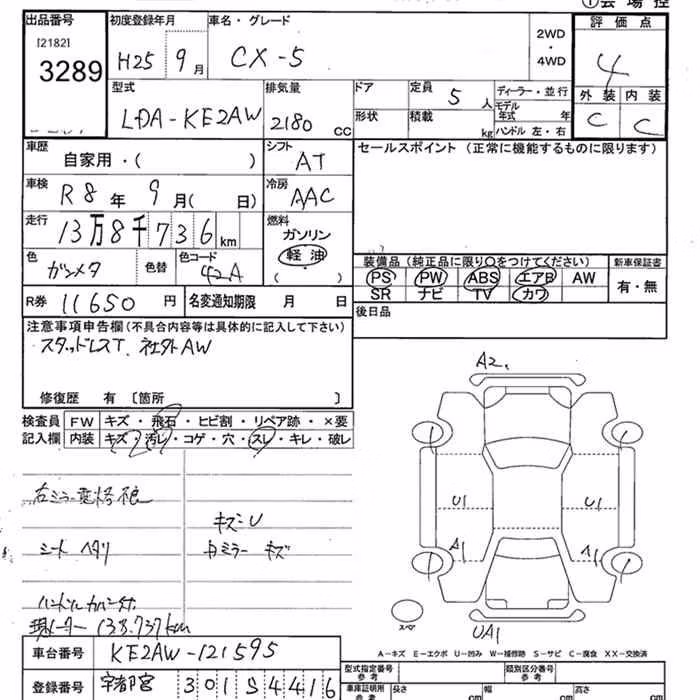 ①会場控
出品番号
[2182]
3289
初度登録年月
H25 9月
車名・グレード
CX-5
2WD
・
4WD
評価点
4
外装 内装
C C
型式
LDA-KE2AW
排気量
2180 CC
ドア
形状
定員 5人
積載 kg
ディーラー・並行
モデル年式 年
ハンドル 左・右
車歴
自家用・( )
シフト
AT
セールスポイント (正常に機能するものに限ります)
車検
R8年 9月( 日)
冷房
AAC
走行
13万8千736km
燃料
ガソリン
軽油
( )
色
ガンメタ
色替
色コード
42A
装備品(純正品に限り○をつけてください)
PS PW ABS エアB AW
SR ナビ TV カワ
新車保証書
有・無
R券 11650円
名変通知期限 月 日
後日品
注意事項申告欄(不具合内容等は具体的に記入して下さい)
スタッドレスT、社外AW
修復歴 有 〔箇所 〕
検査員
記入欄
FW キズ・飛石・ヒビ割・リペア跡・×要
内装 キズ・汚レ・コゲ・穴・スレ・キレ・破レ
シート ヘタリ
キズ=U
ミラー キズ
ハンドルカバー付
現メーター 138.737km
A2.
U1
U1
A1
A1
スペア
UA1
A-キズ E-エクボ U-凹み W-補修跡 S-サビ C-腐食 XX-交換済
車台番号 KE2AW-121595
登録番号 宇都宮 301 S 4416
型式指定番号
参考
類別区分番号
参考
車庫証明用
参考
長さ cm 幅 cm 高さ cm